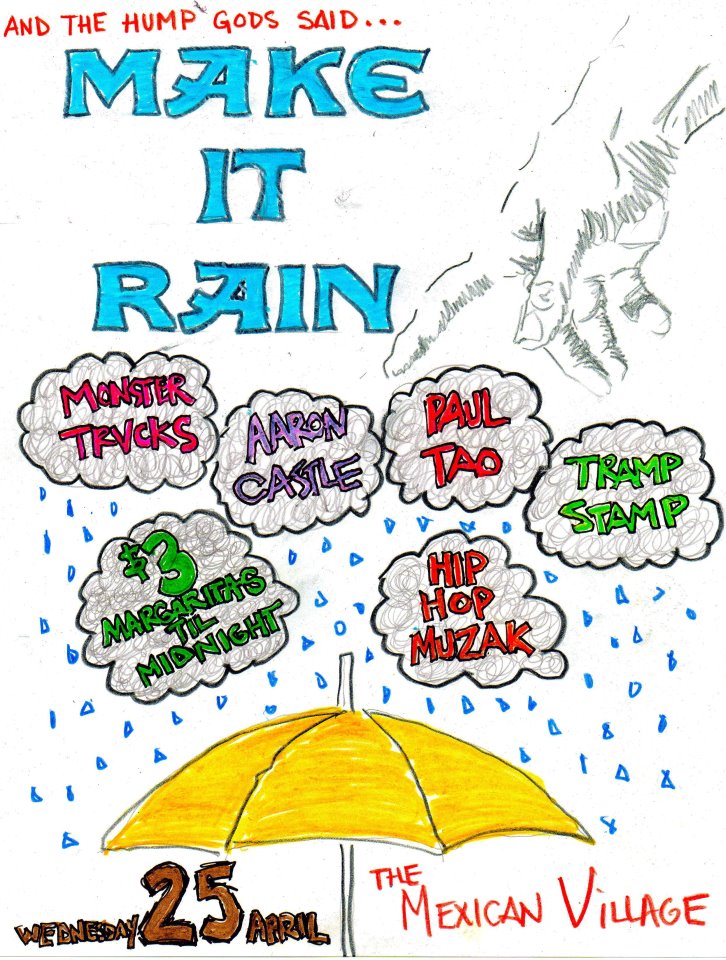 AND THE HUMP GODS SAID...
MAKE
IT
RAIN
MONSTER
TRVCKS
AARON
CASTLE
PAUL
TAO
TRAMP
STAMP
$3
MARGARITAS
TIL
MIDNIGHT
HIP
HOP
MUZAK
WEDNESDAY 25 APRIL
THE
MEXICAN VILLAGE